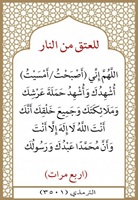 للعتق من النار
اللَّهُمَّ إِنِّي (أَصْبَحْتُ/أَمْسَيْتُ)
أُشْهِدُكَ وَأُشْهِدُ حَمَلَةَ عَرْشِكَ
وَمَلَائِكَتَكَ وَجَمِيعَ خَلْقِكَ أَنَّكَ
أَنْتَ اللَّهُ لَا إِلَهَ إِلَّا أَنْتَ
وَأَنَّ مُحَمَّدًا عَبْدُكَ وَرَسُولُكَ
(اربع مرات)
الترمذي (٣٥٠١)